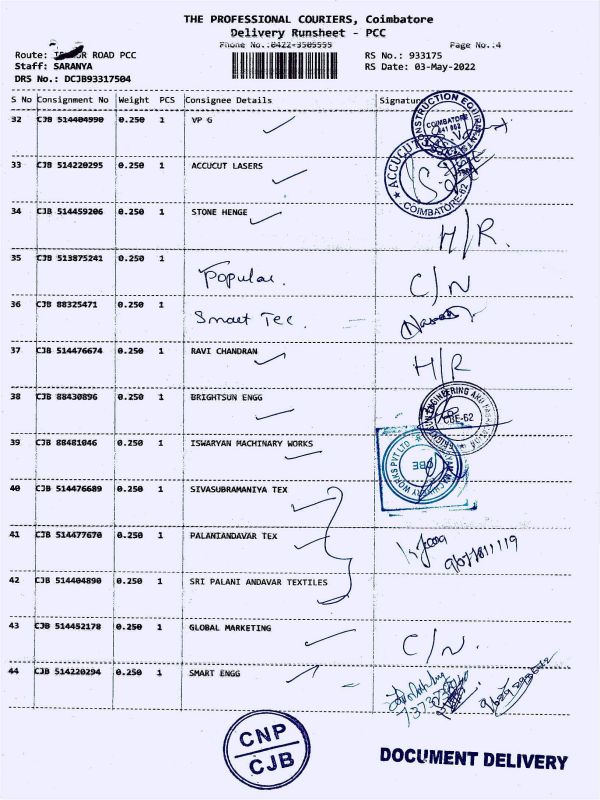 THE PROFESSIONAL COURIERS, Coimbatore
Delivery Runsheet - PCC
Phone No.:0422-3505555 Page No.:4
Route: ROAD PCC RS No.: 933175
Staff: SARANYA RS Date: 03-May-2022
DRS No.: DCJB93317504
S No Consignment No Weight PCS Consignee Details Signature
32 CJB 514404990 0.250 1 VP G
CONSTRUCTION EQUIPMENT
COIMBATORE
641 062
33 CJB 514220295 0.250 1 ACCUCUT LASERS
ACCUCUT
COIMBATORE-62
34 CJB 514459206 0.250 1 STONE HENGE H/R.
35 CJB 513875241 0.250 1 Popular. C/N
36 CJB 88325471 0.250 1 Smart Tec.
37 CJB 514476674 0.250 1 RAVI CHANDRAN H/R
38 CJB 88430896 0.250 1 BRIGHTSUN ENGG
CBE-62
39 CJB 88481046 0.250 1 ISWARYAN MACHINARY WORKS
WORKS PVT LTD
CBE
40 CJB 514476689 0.250 1 SIVASUBRAMANIYA TEX
41 CJB 514477670 0.250 1 PALANIANDAVAR TEX
42 CJB 514404890 0.250 1 SRI PALANI ANDAVAR TEXTILES
43 CJB 514452178 0.250 1 GLOBAL MARKETING C/N.
44 CJB 514220294 0.250 1 SMART ENGG
CNP
CJB
DOCUMENT DELIVERY